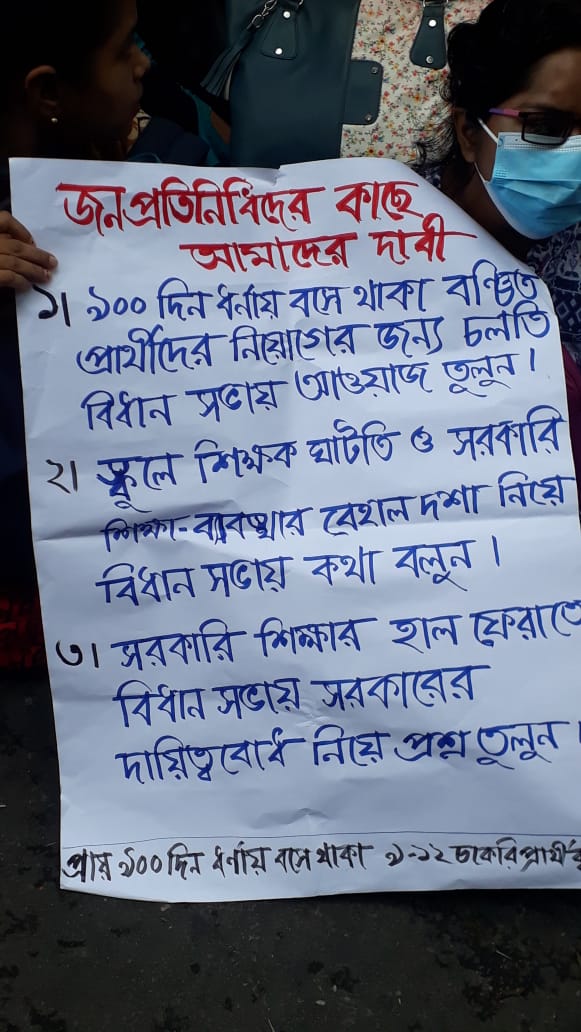 জনপ্রতিনিধিদের কাছে
আমাদের দাবী
১। ৯০০ দিন ধর্নায় বসে থাকা বঞ্চিত
প্রার্থীদের নিয়োগের জন্য চলতি
বিধান সভায় আওয়াজ তুলুন।
২। স্কুলে শিক্ষক ঘাটতি ও সরকারি
শিক্ষা-ব্যবস্থার বেহাল দশা নিয়ে
বিধান সভায় কথা বলুন।
৩। সরকারি শিক্ষার হাল ফেরাতে
বিধান সভায় সরকারের
দায়িত্ববোধ নিয়ে প্রশ্ন তুলুন।
প্রায় ৯০০ দিন ধর্ণায় বসে থাকা ৯-১২ চাকরিপ্রার্থী